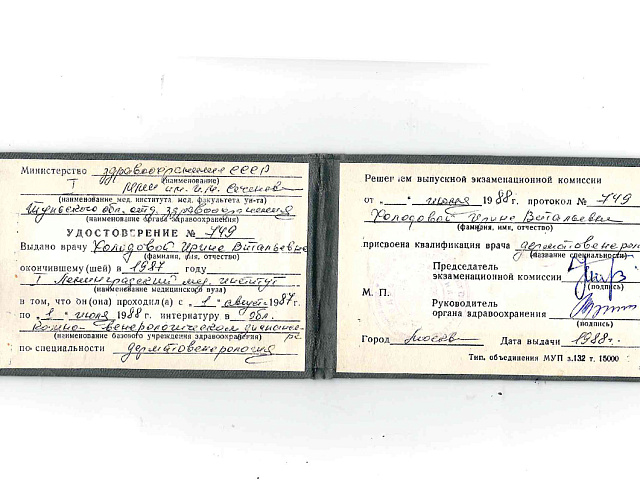 Министерство здравоохранения СССР
(наименование)
I ММИ им. И.М. Сеченова
(наименование мед. института мед. факультета ун-та)
Тульского обл. отд. здравоохранения
(наименование органа здравоохранения)
УДОСТОВЕРЕНИЕ № 749
Выдано врачу Холодовой Ирине Витальевне
(фамилия, имя, отчество)
окончившему(шей) в 1987 году
I Ленинградский мед. институт
(наименование медицинского вуза)
в том, что он(она) проходил(а) с „1" август 1987г.
по „1" июля 1988 г. интернатуру в обл.
кожно-венерологическом диспансере
(наименование базового учреждения здравоохранения)
по специальности дерматовенерология
Решением выпускной экзаменационной комиссии
от „ " июля 1988г. протокол № 749
Холодовой Ирине Витальевне
(фамилия, имя, отчество)
присвоена квалификация врача дерматовенероло
(название специальности)
Председатель
экзаменационной комиссии
(подпись)
М. П.
Руководитель
органа здравоохранения
(подпись)
Город Москва Дата выдачи 1988г.
Тип. объединения МУП з.132 т. 15000